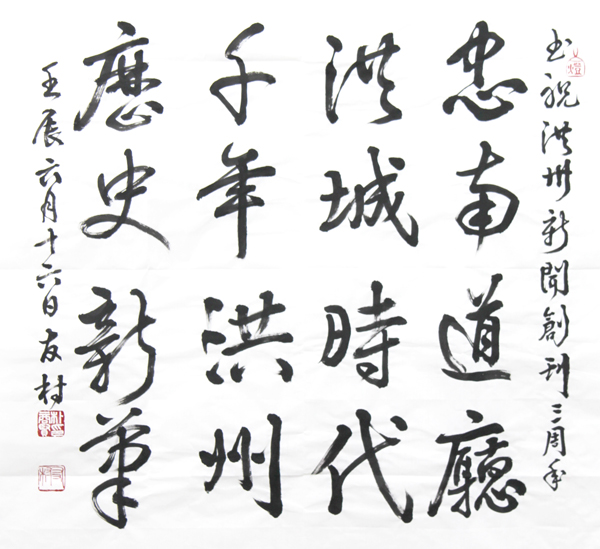 书祝洪州新聞創刊三周年
忠南道廳
洪城時代
千年洪州
歷史新
壬辰六月十六日友村